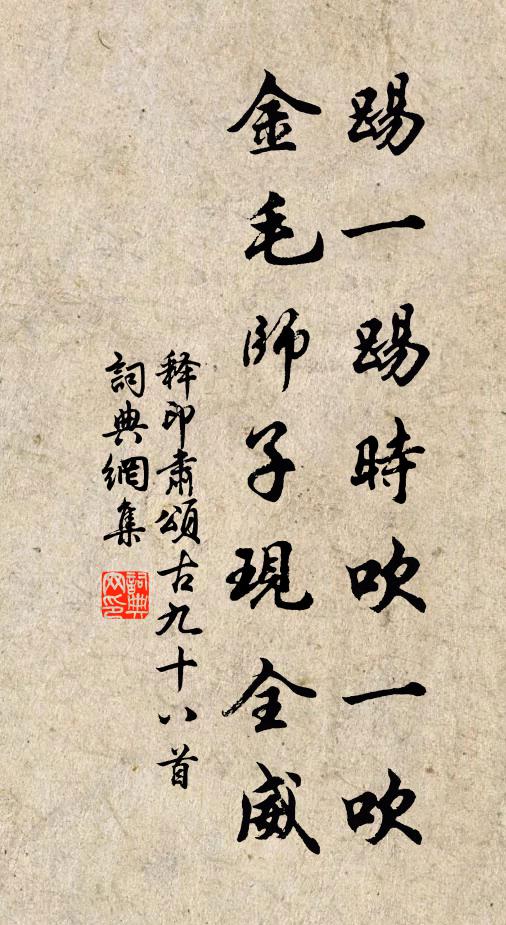 踢一踢時吹一吹
金毛師子現全威
释印肅頌古九十八首
詞典網集
詞典
网印